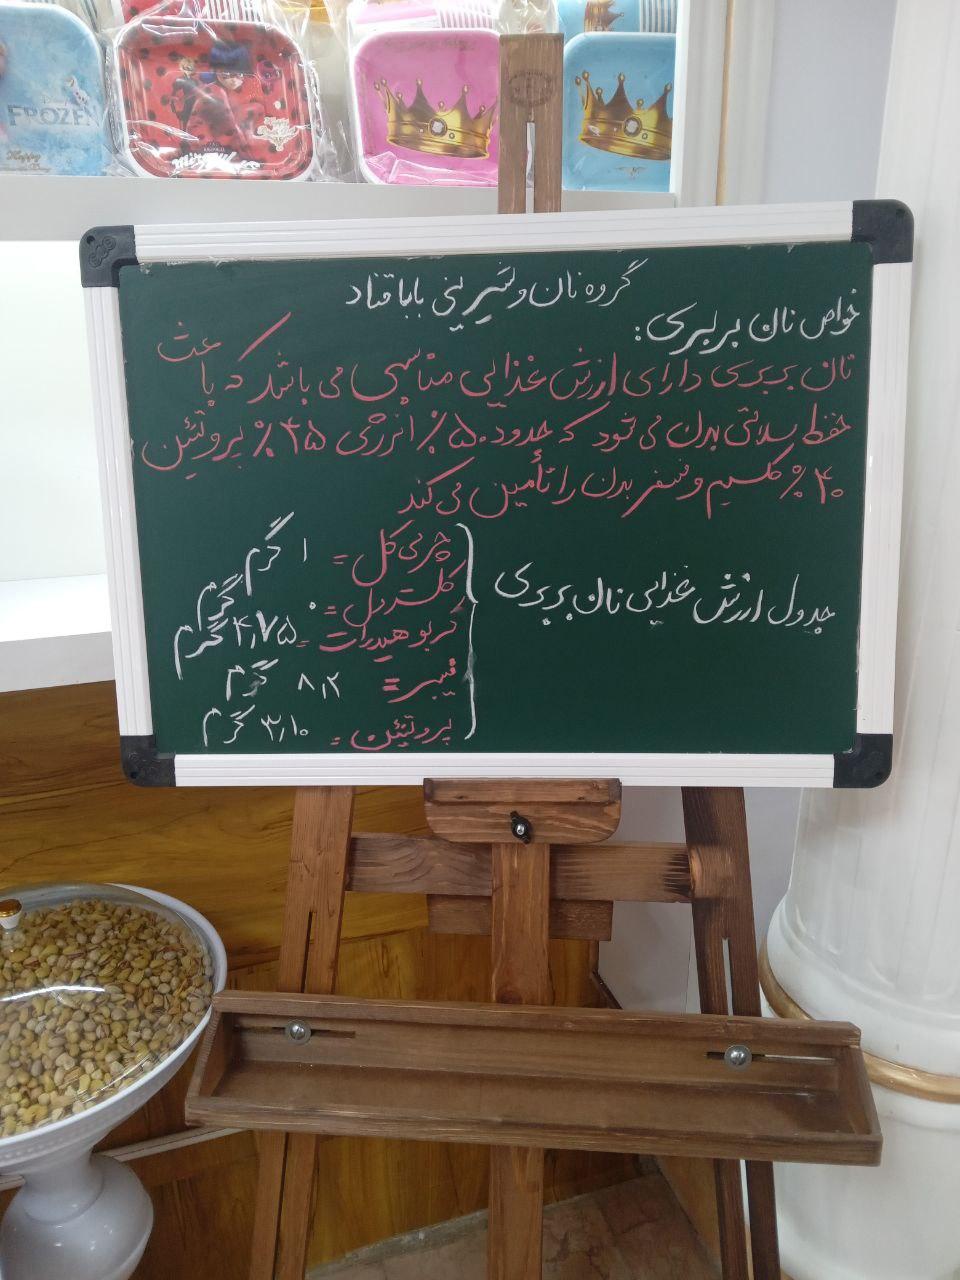 FROZEN
گروه نان و شیرینی بابا قناد
خواص نان بربری:
نان بربری دارای ارزش غذایی مناسبی می باشد که باعث
حفظ سلامتی بدن می شود که حدود ۵۰٪ انرژی ۴۵٪ پروتئین
۴۰٪ کلسیم و فسفر بدن را تأمین می کند
جدول ارزش غذایی نان بربری
چربی کل = ۱ گرم
کلسترول = ۰ گرم
کربوهیدرات = ۴,۷۵ گرم
فیبر = ۸,۲ گرم
پروتئین = ۳,۱۰ گرم